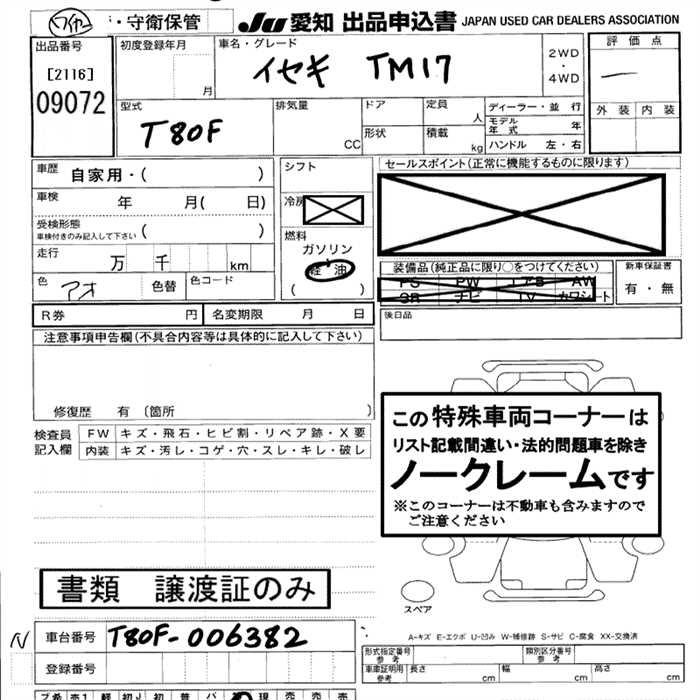 ワイヤー ・守衛保管 JU 愛知 出品申込書 JAPAN USED CAR DEALERS ASSOCIATION
出品番号
[2116]
09072
初度登録年月
月
車名・グレード
イセキ TM17
2WD
・
4WD
評価点
外装 内装
型式
T80F
排気量
CC
ドア
形状
定員
人
積載
kg
ディーラー・並 行
モデル年式 年
ハンドル 左・右
車歴 自家用・( )
車検 年 月( 日)
受検形態
車検付きのみ記入して下さい ( )
走行 万 千 km
色 アオ 色替 色コード
シフト
冷房
燃料
ガソリン
軽油
( )
セールスポイント(正常に機能するものに限ります)
装備品(純正品に限り○をつけてください)
PS PW エアB AW
SR ナビ TV カワシート
新車保証書
有・無
後日品
R券 円 名変期限 月 日
注意事項申告欄(不具合内容等は具体的に記入して下さい)
修復歴 有 〔箇所
検査員
記入欄
FW キズ・飛石・ヒビ割・リペア跡・X要
内装 キズ・汚レ・コゲ・穴・スレ・キレ・破レ
この特殊車両コーナーは
リスト記載間違い・法的問題車を除き
ノークレームです
※このコーナーは不動車も含みますので
ご注意ください
スペア
書類 譲渡証のみ
A-キズ E-エクボ U-凹み W-補修跡 S-サビ C-腐食 XX-交換済
N 車台番号 T80F-006382
登録番号
形式指定番号
参考
類別区分番号
参考
車庫証明用
参考
長さ 幅 高さ